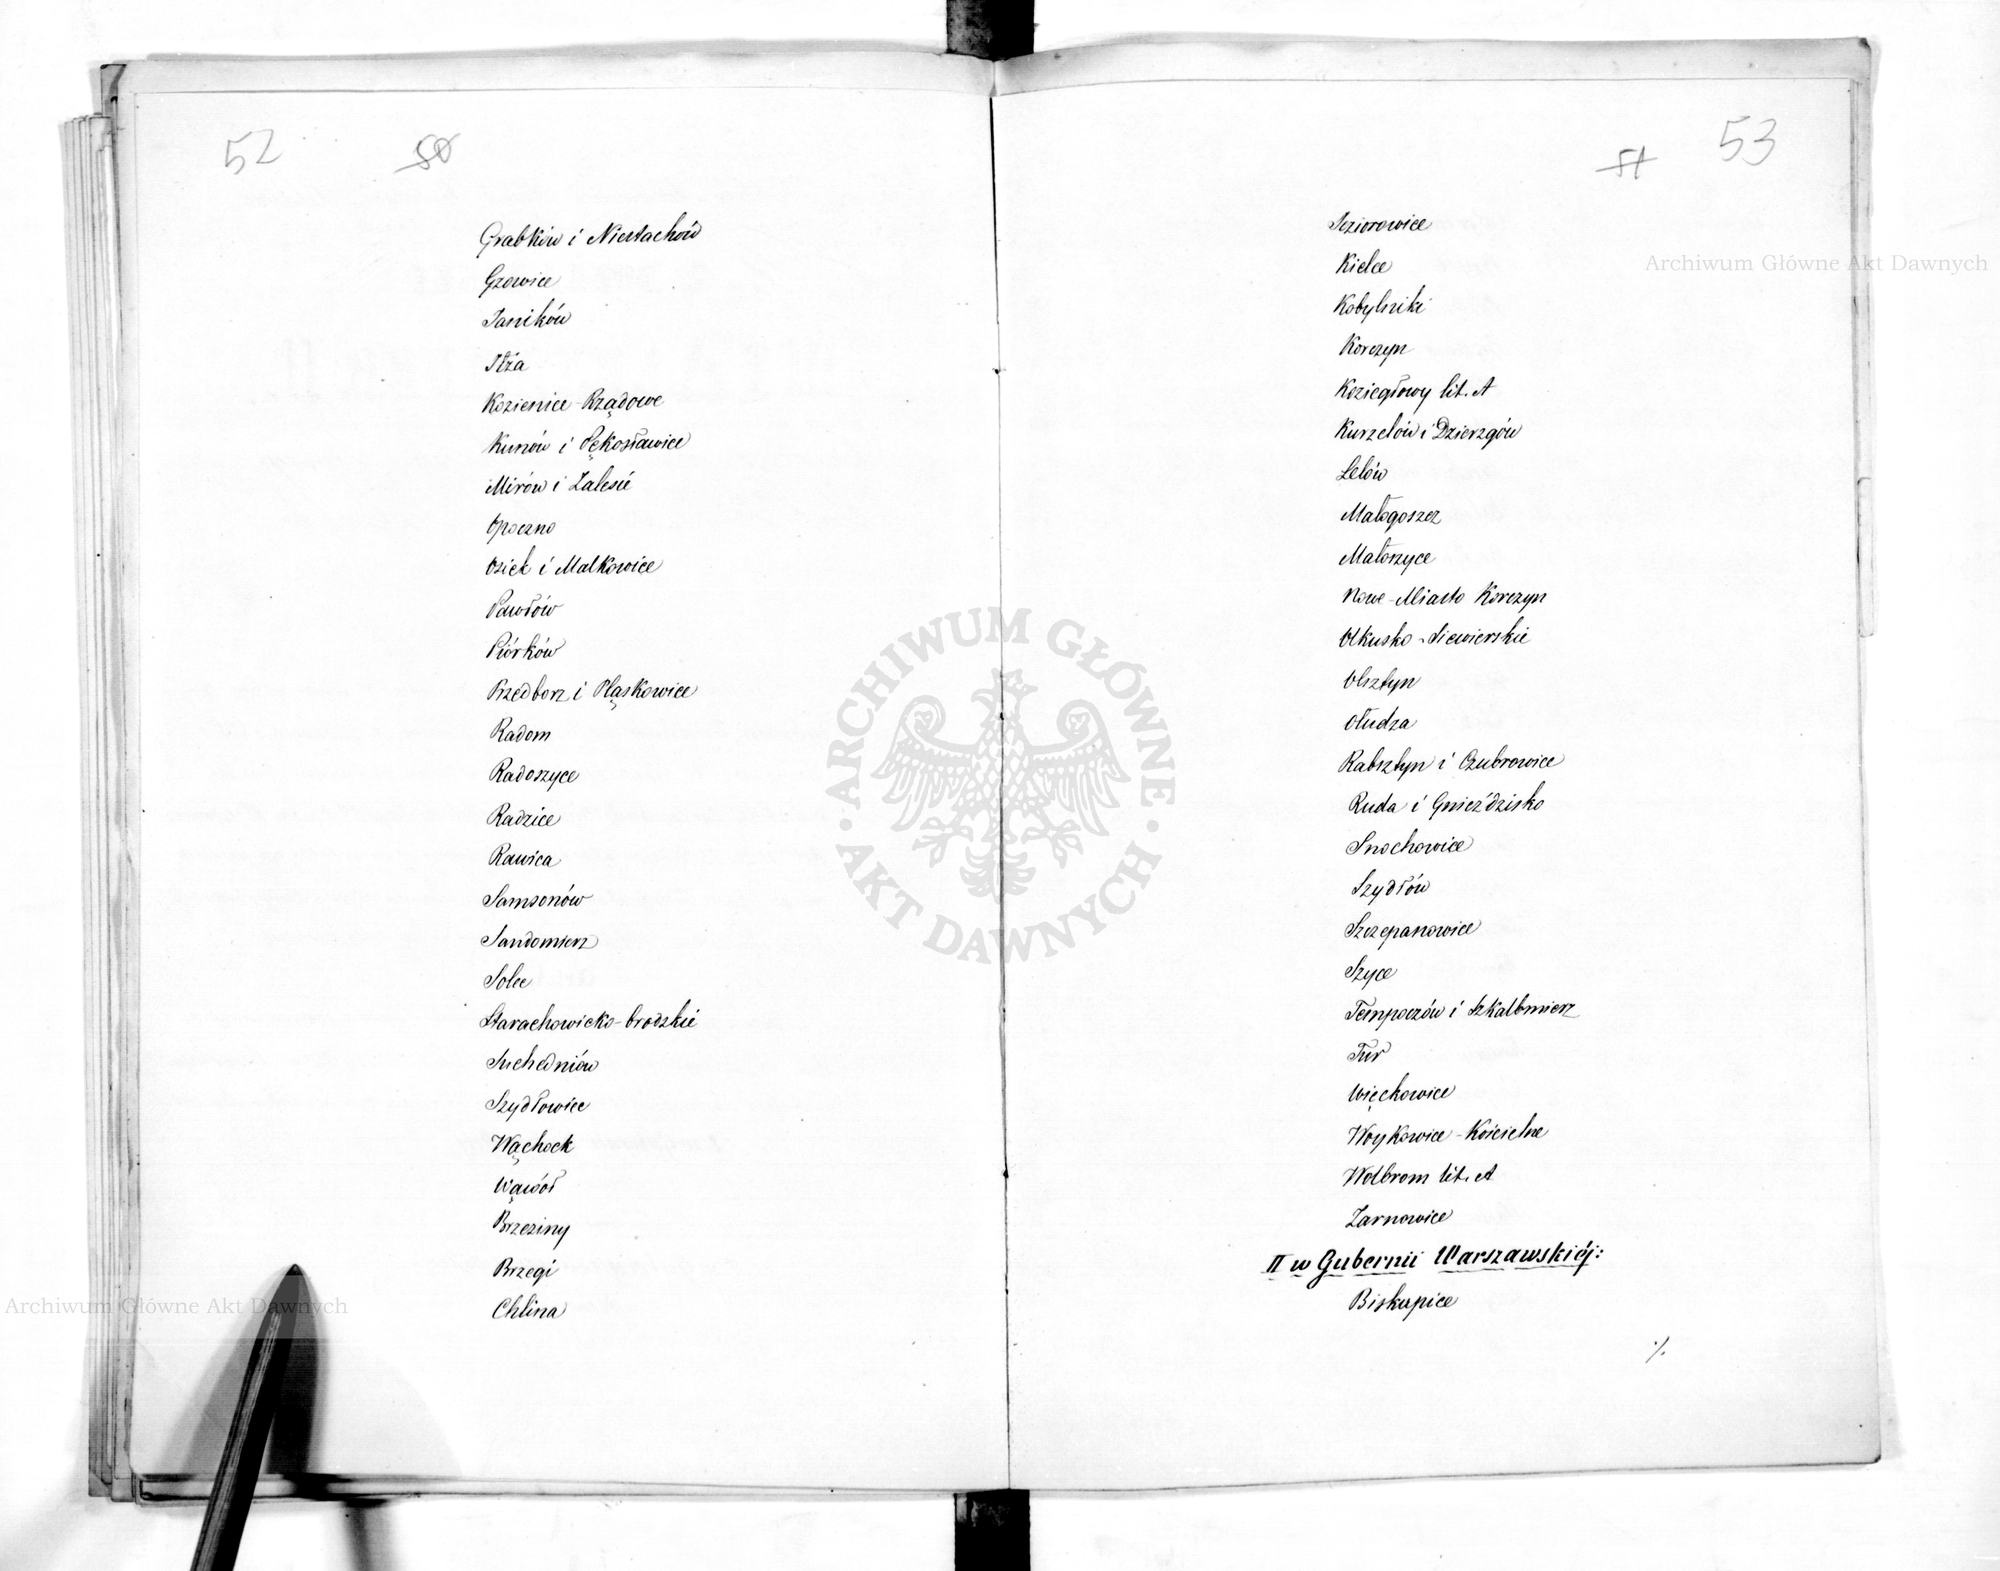 52 50
Grabków i Niestachów
Gzowice
Janików
Iłża
Kozienice-Rządowe
Kunów i Pękosławice
Mirów i Zalesie
Opoczno
Osiek i Malkowice
Pawłów
Piórków
Przedborz i Pląskowice
Radom
Radoszyce
Radzice
Rawica
Samsonów
Sandomierz
Solec
Starachowicko-brodzkie
Suchedniów
Szydłowiec
Wąchock
Wąwół
Brzeziny
Brzegi
Chlina
51 53
Jeziorowice
Kielce
Kobylniki
Korczyn
Koziegłowy lit. A
Kurzelów i Dzierzgów
Lelów
Małogoszcz
Małoszyce
Nowe-Miasto Korczyn
Olkusko-Siewierskie
Olsztyn
Ołudza
Rabsztyn i Czubrowice
Ruda i Gnieździsko
Snochowice
Szydłów
Szczepanowice
Szyce
Tempoczów i Szkalbmierz
Tur
Więckowice
Woykowice-Kościelne
Wolbrom lit. A
Żarnowice
II w Gubernii Warszawskiéj:
Biskupice
./.
Archiwum Główne Akt Dawnych
ARCHIWUM GŁÓWNE AKT DAWNYCH
Archiwum Główne Akt Dawnych